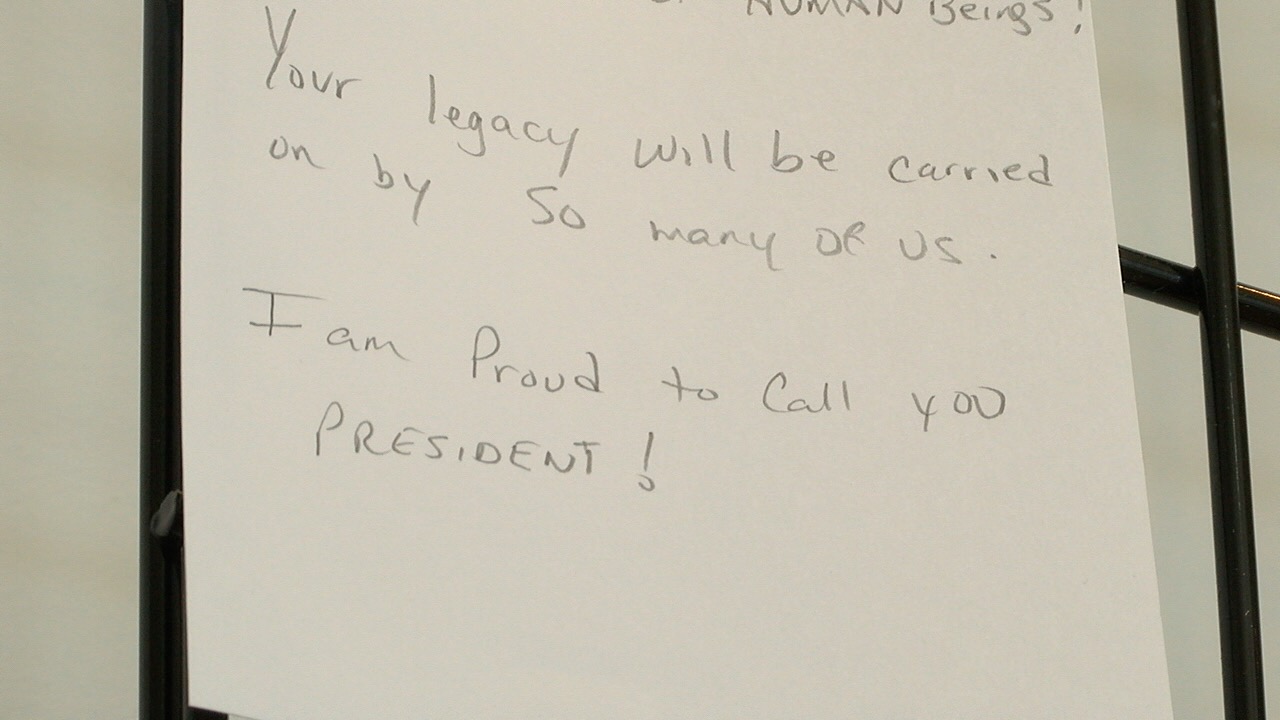 HUMAN Beings!
Your legacy will be carried
on by so many of us.
I am Proud to Call you
PRESIDENT!